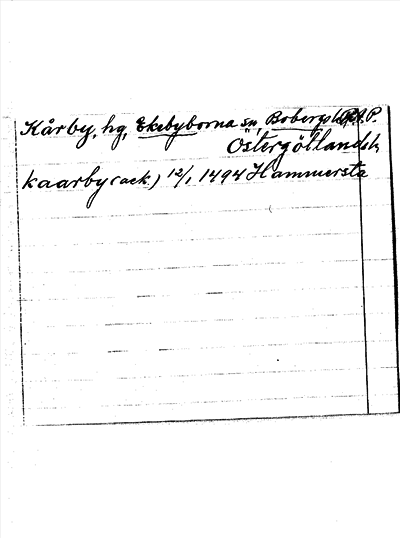 Kårby, hg, Ekebyborna sn, Bobergs hd, R.A.P.
Östergötlands l.
kaarby (ack.) 12/1 1494 Hammersta